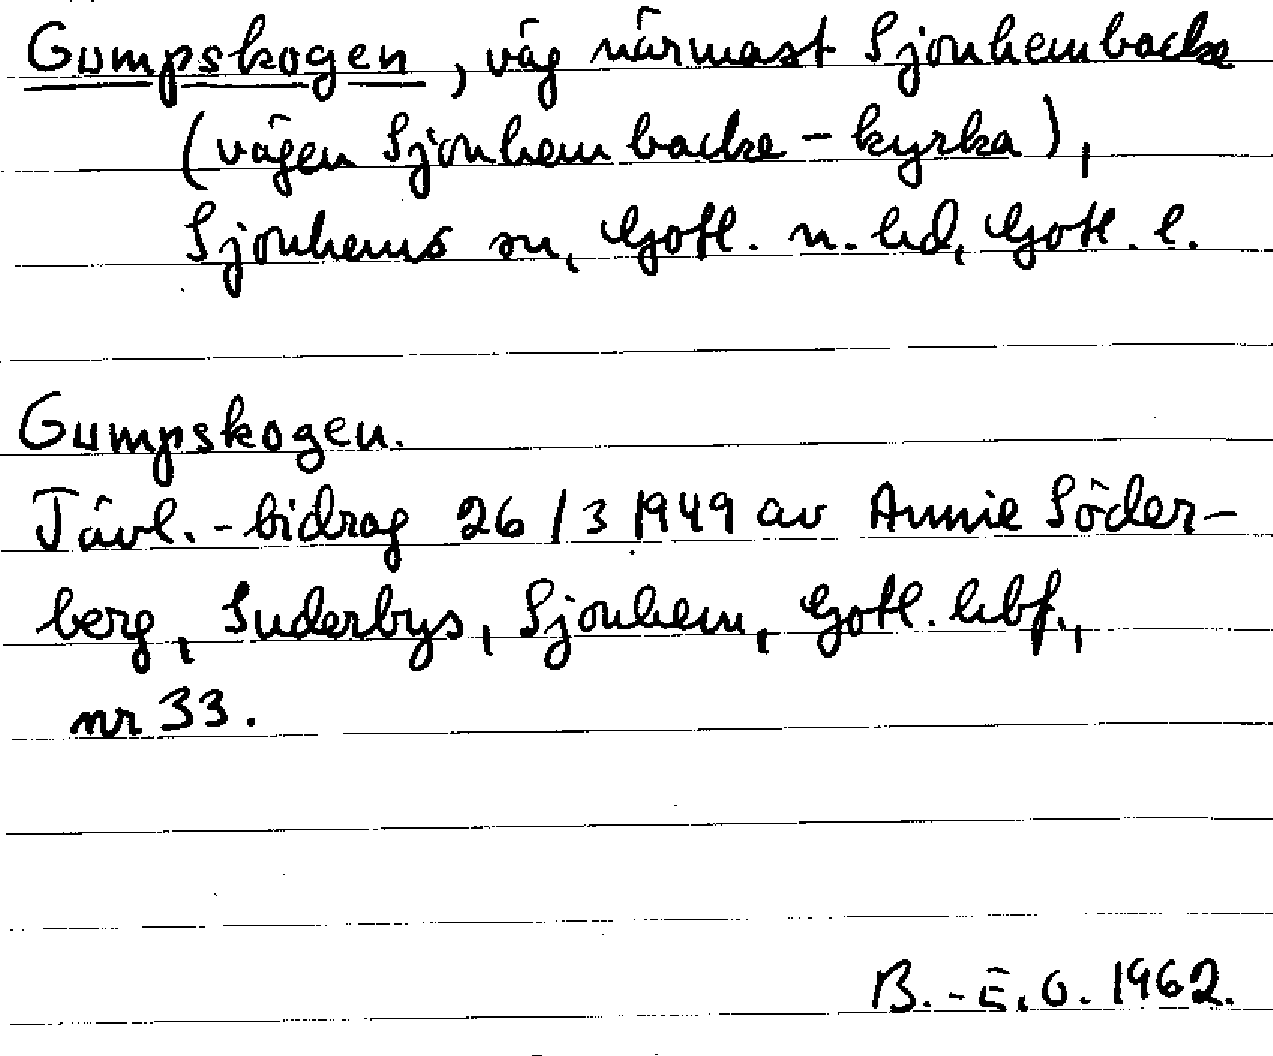 Gumpskogen, väg närmast Sjonhembacke
(vägen Sjonhembacke - kyrka),
Sjonhems sn, Gotl. n. hd, Gotl. l.
Gumpskogen.
Tävl.-bidrag 26/3 1949 av Annie Söder-
berg, Suderbys, Sjonhem, Gotl. hbf.,
nr 33.
B.-E.O. 1962.